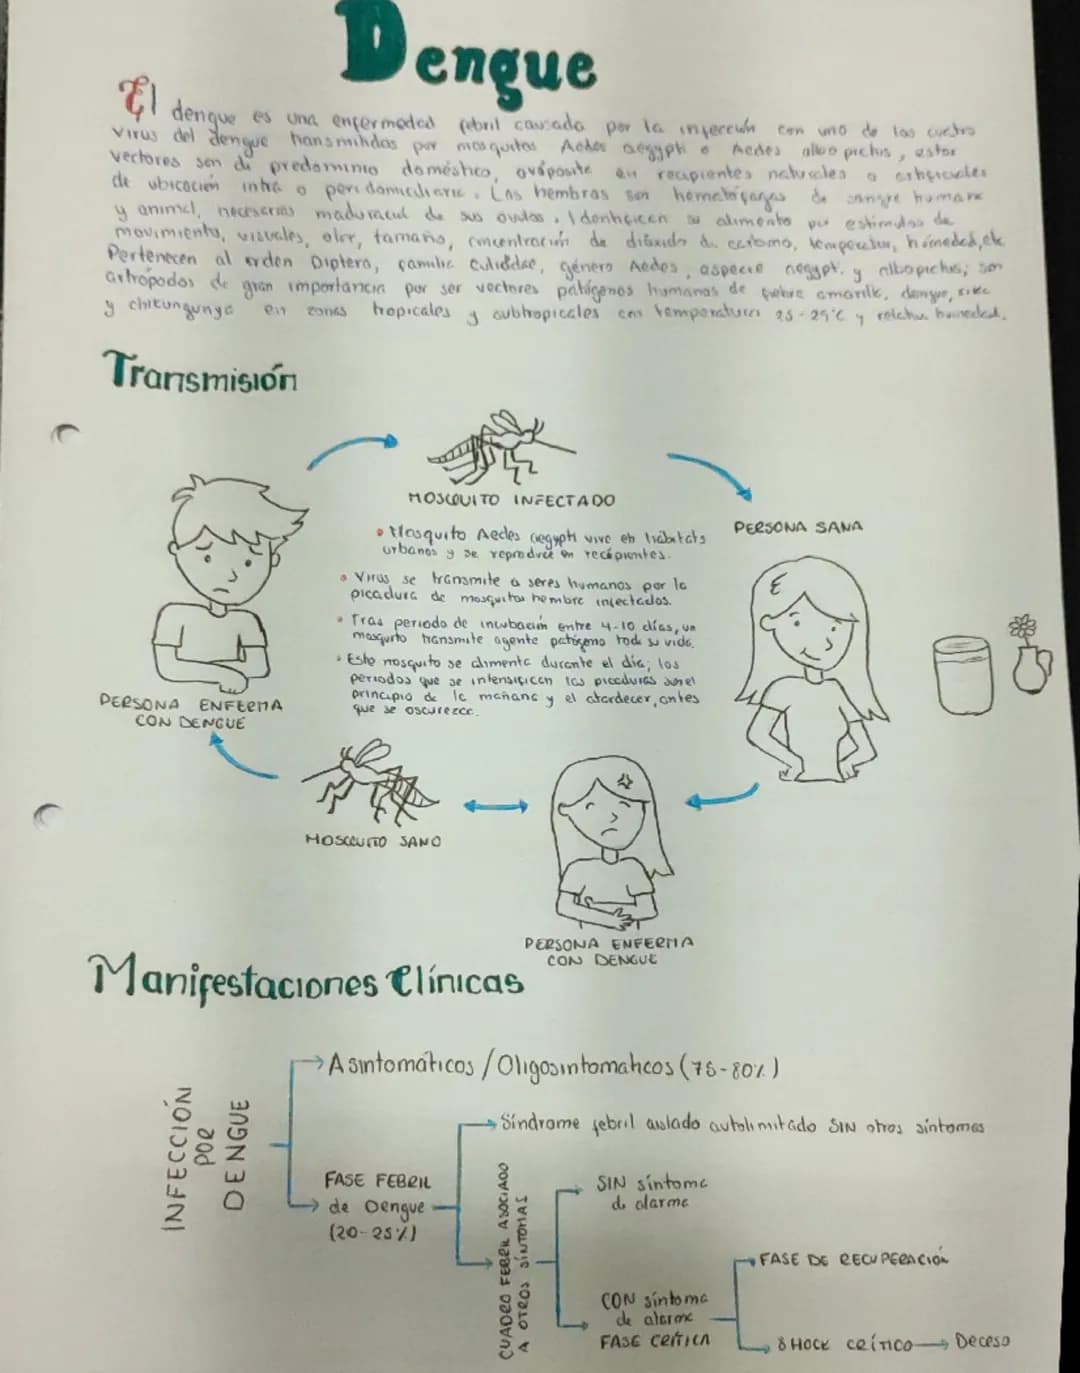 Dengue
El dengue es una enfermedad febril causada por la infección con uno de los cuatro
virus del dengue transmitidas por mosquitos Aedes aegypti o Aedes albopictus, estos
vectores son de predominio doméstico, ovoposite en recipientes naturales o artificiales
de ubicación intra o peridomiciliaria. Las hembras son hematófagas de sangre humana
y animal, necesarias de sus óvulos. Identifican su alimento por estímulos de
movimiento, visuales, olor, tamaño, concentración de dióxido de carbono, temperatur, humedad, etc
Pertenecen al orden Diptera, familia Culididae, género Aedes, especie aegypti y albopictus; son
artrópodos de gran importancia por ser vectores patógenos humanos de fiebre amarilla, dengue, zika
y chikungunya en zonas tropicales y subtropicales con temperaturas 25-29°C y relativa humedad.
Transmisión
MOSQUITO INFECTADO
PERSONA SANA
• Mosquito Aedes aegypti vive en hábitats
urbanos y se reproduce en recipientes.
• Virus se transmite a seres humanos por la
picadura de mosquitos hembre infectados.
• Tras periodo de incubación entre 4-10 días, un
mosquito transmite agente patógeno toda su vida.
• Este mosquito se alimenta durante el día; los
periodos que se intensifican las picaduras son el
principio de la mañana y el atardecer, antes
que se oscurezca.
PERSONA ENFERMA
CON DENGUE
MOSQUITO SANO
PERSONA ENFERMA
CON DENGUE
Manifestaciones Clínicas
INFECCIÓN
POR
DENGUE
Asintomáticos / Oligosintomaticos (75-80%)
FASE FEBRIL
de Dengue
(20-25%)
Síndrome febril aislado autolimitado SIN otros síntomas
CUADRO FEBRIL ASOCIADO
A OTROS SÍNTOMAS
SIN síntoma
de alarma
CON síntoma
de alarma
FASE CRÍTICA
FASE DE RECUPERACIÓN
SHOCK CRÍTICO → Deceso